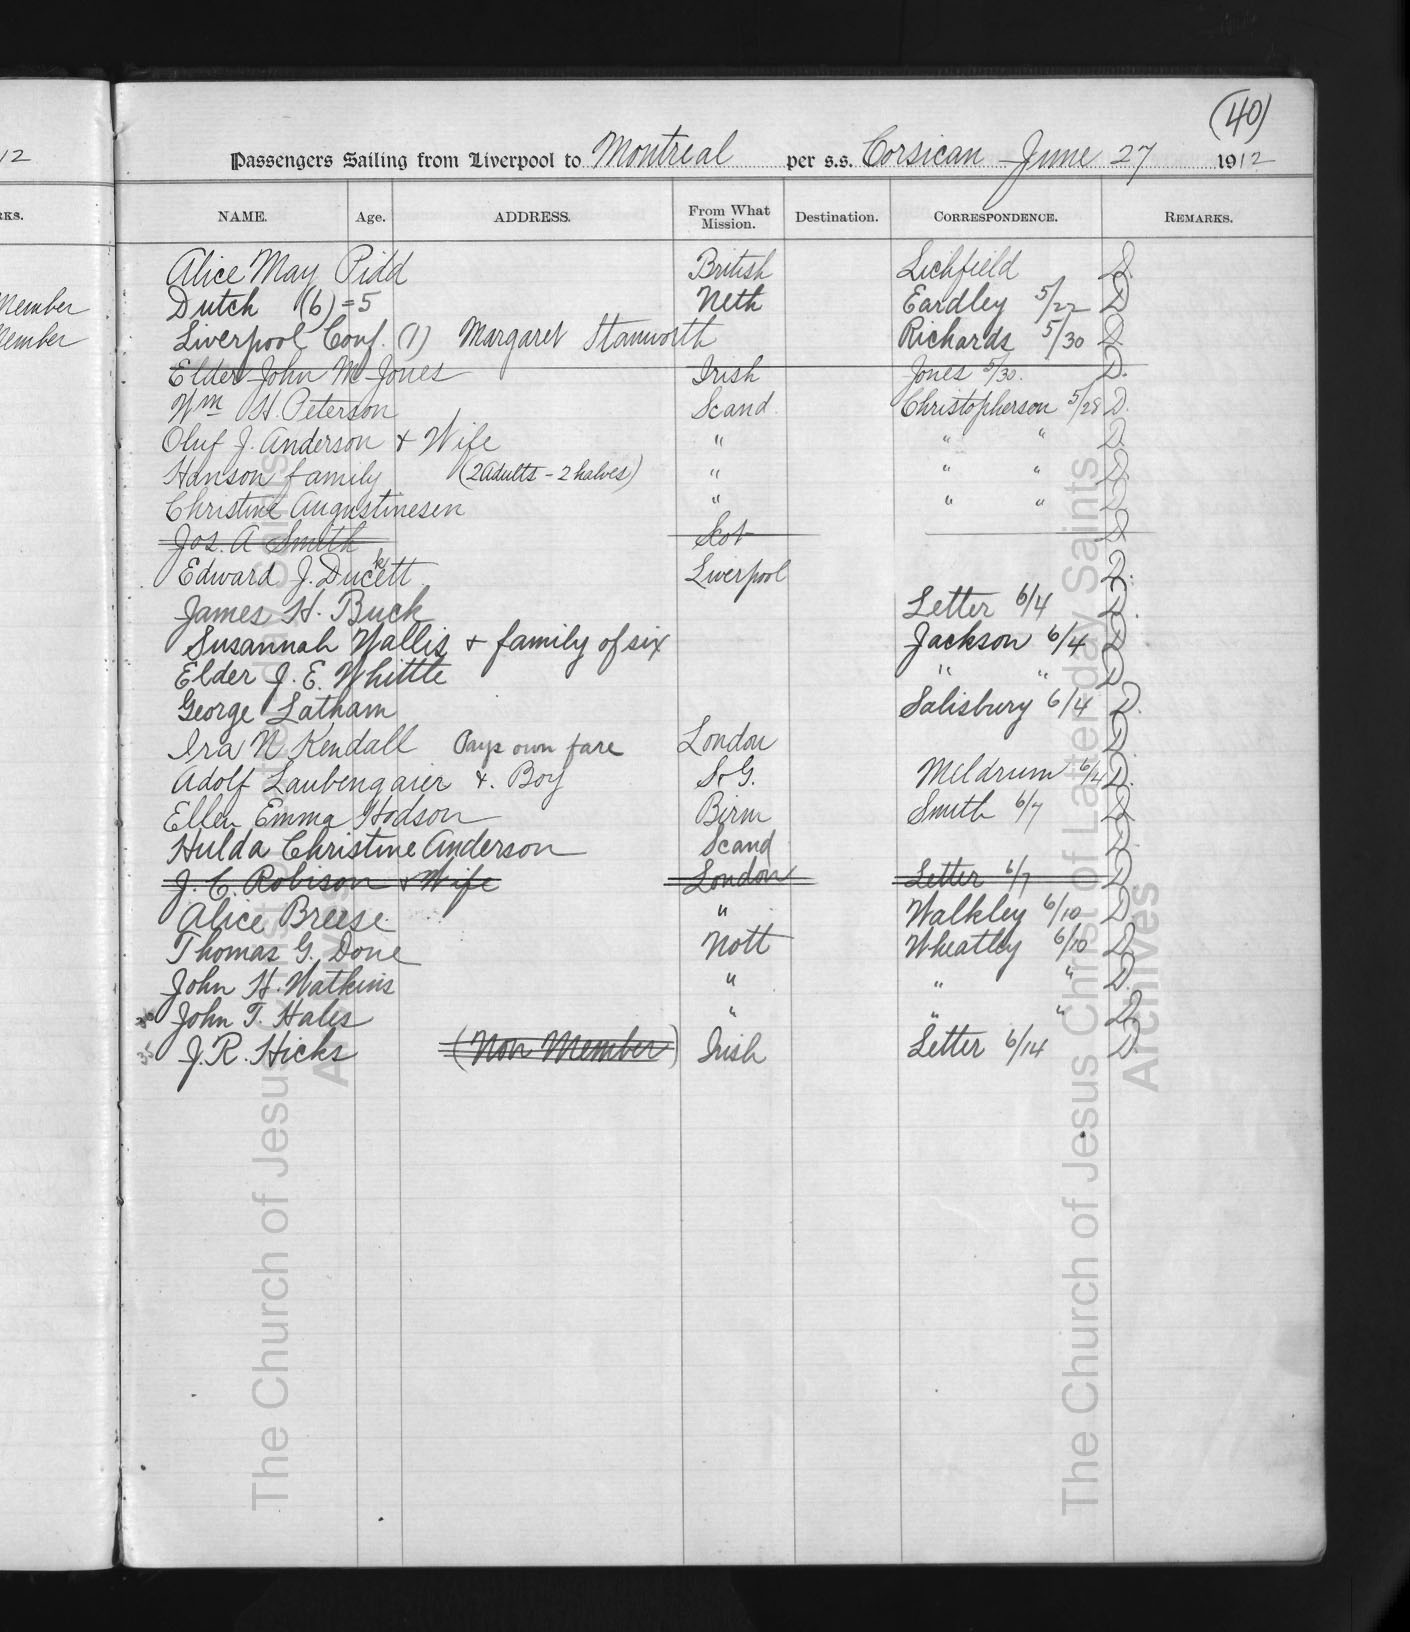 (40)
12
Passengers Sailing from Liverpool to Montreal per s.s. Corsican June 27 1912
RKS.
NAME. Age. ADDRESS. From What Mission. Destination. CORRESPONDENCE. REMARKS.
Alice May Pidd British Lichfield D.
Member
Dutch (6) = 5 Neth Eardley 5/22 D
Member
Liverpool Conf. (1) Margaret Stanworth Richards 5/30 D
Elder John M Jones Irish Jones 5/30. D.
Wm H. Peterson Scand. Christopherson 5/28 D.
Oluf J. Anderson & Wife " " " D.
Hanson family (2 Adults - 2 halves) " " " D
Christine Augustinesen " " " D
Jos. A Smith Scot D
Edward J. Duckett Liverpool D.
James H. Buck Letter 6/4 D.
Susannah Wallis & family of six Jackson 6/4 D
Elder J. E. Whittle " " D
George Latham Salisbury 6/4 D.
Ira N Kendall Pays own fare London D.
Adolf Laubengaier & Boy S.G. Meldrum 6/4 D.
Ellen Emma Hodson Birm Smith 6/7 D
Hulda Christine Anderson Scand D.
J. C. Robison & Wife London Letter 6/7 D
Alice Breese " Walkley 6/10 D
Thomas G. Done Nott Wheatley 6/10 D.
John H. Watkins " " " D.
John T. Hales " " " D
35 J. R. Hicks (Non Member) Irish Letter 6/14 D.
The Church of Jesus Christ of Latter-day Saints
Archives
The Church of Jesus Christ of Latter-day Saints
Archives